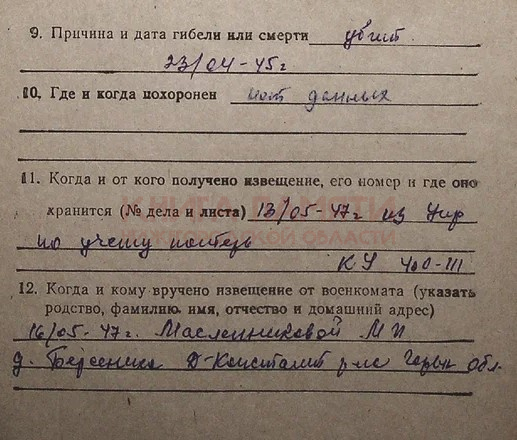 9. Причина и дата гибели или смерти убит
23/04-45 г
10. Где и когда похоронен нет данных
11. Когда и от кого получено извещение, его номер и где оно
хранится (№ дела и листа) 13/05-47 г из Упр
по учету потерь
КУ 400-111
12. Когда и кому вручено извещение от военкомата (указать
родство, фамилию, имя, отчество и домашний адрес)
16/05-47 г. Масленниковой М
д. Д-Константи Горьк Обл.